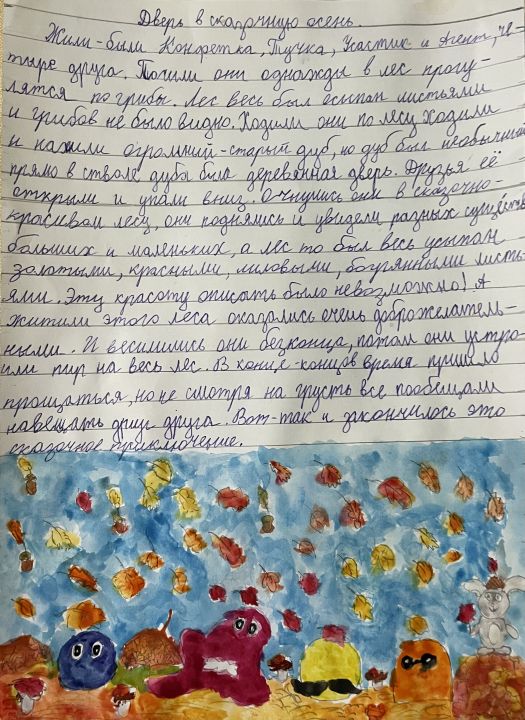 Дверь в сказочную осень.
Жили-были Конфетка, Тучка, Усастик и Агент, че-
тыре друга. Пошли они однажды в лес прогу-
лятся по грибы. Лес весь был осыпан листьями
и грибов не было видно. Ходили они по лесу ходили
и нашли огромний-старый дуб, но дуб был необычный
прямо в стволе дуба была деревянная дверь. Друзья её
открыли и упали вниз. Очнулись они в сказочно-
красивом лесу, они поднялись и увидели разных существ
больших и маленьких, а лес то был весь усыпан
золотыми, красными, лиловыми, богрянными листь-
ями. Эту красоту описать было невозможно! А
житили этого леса оказались очень доброжелатель-
ными. И весилились они безконца, потом они устро-
или пир на весь лес. В конце-концов время пришло
прощаться, но не смотря на грусть все пообещали
навещать друг друга. Вот-так и закончилось это
сказочное приключение.